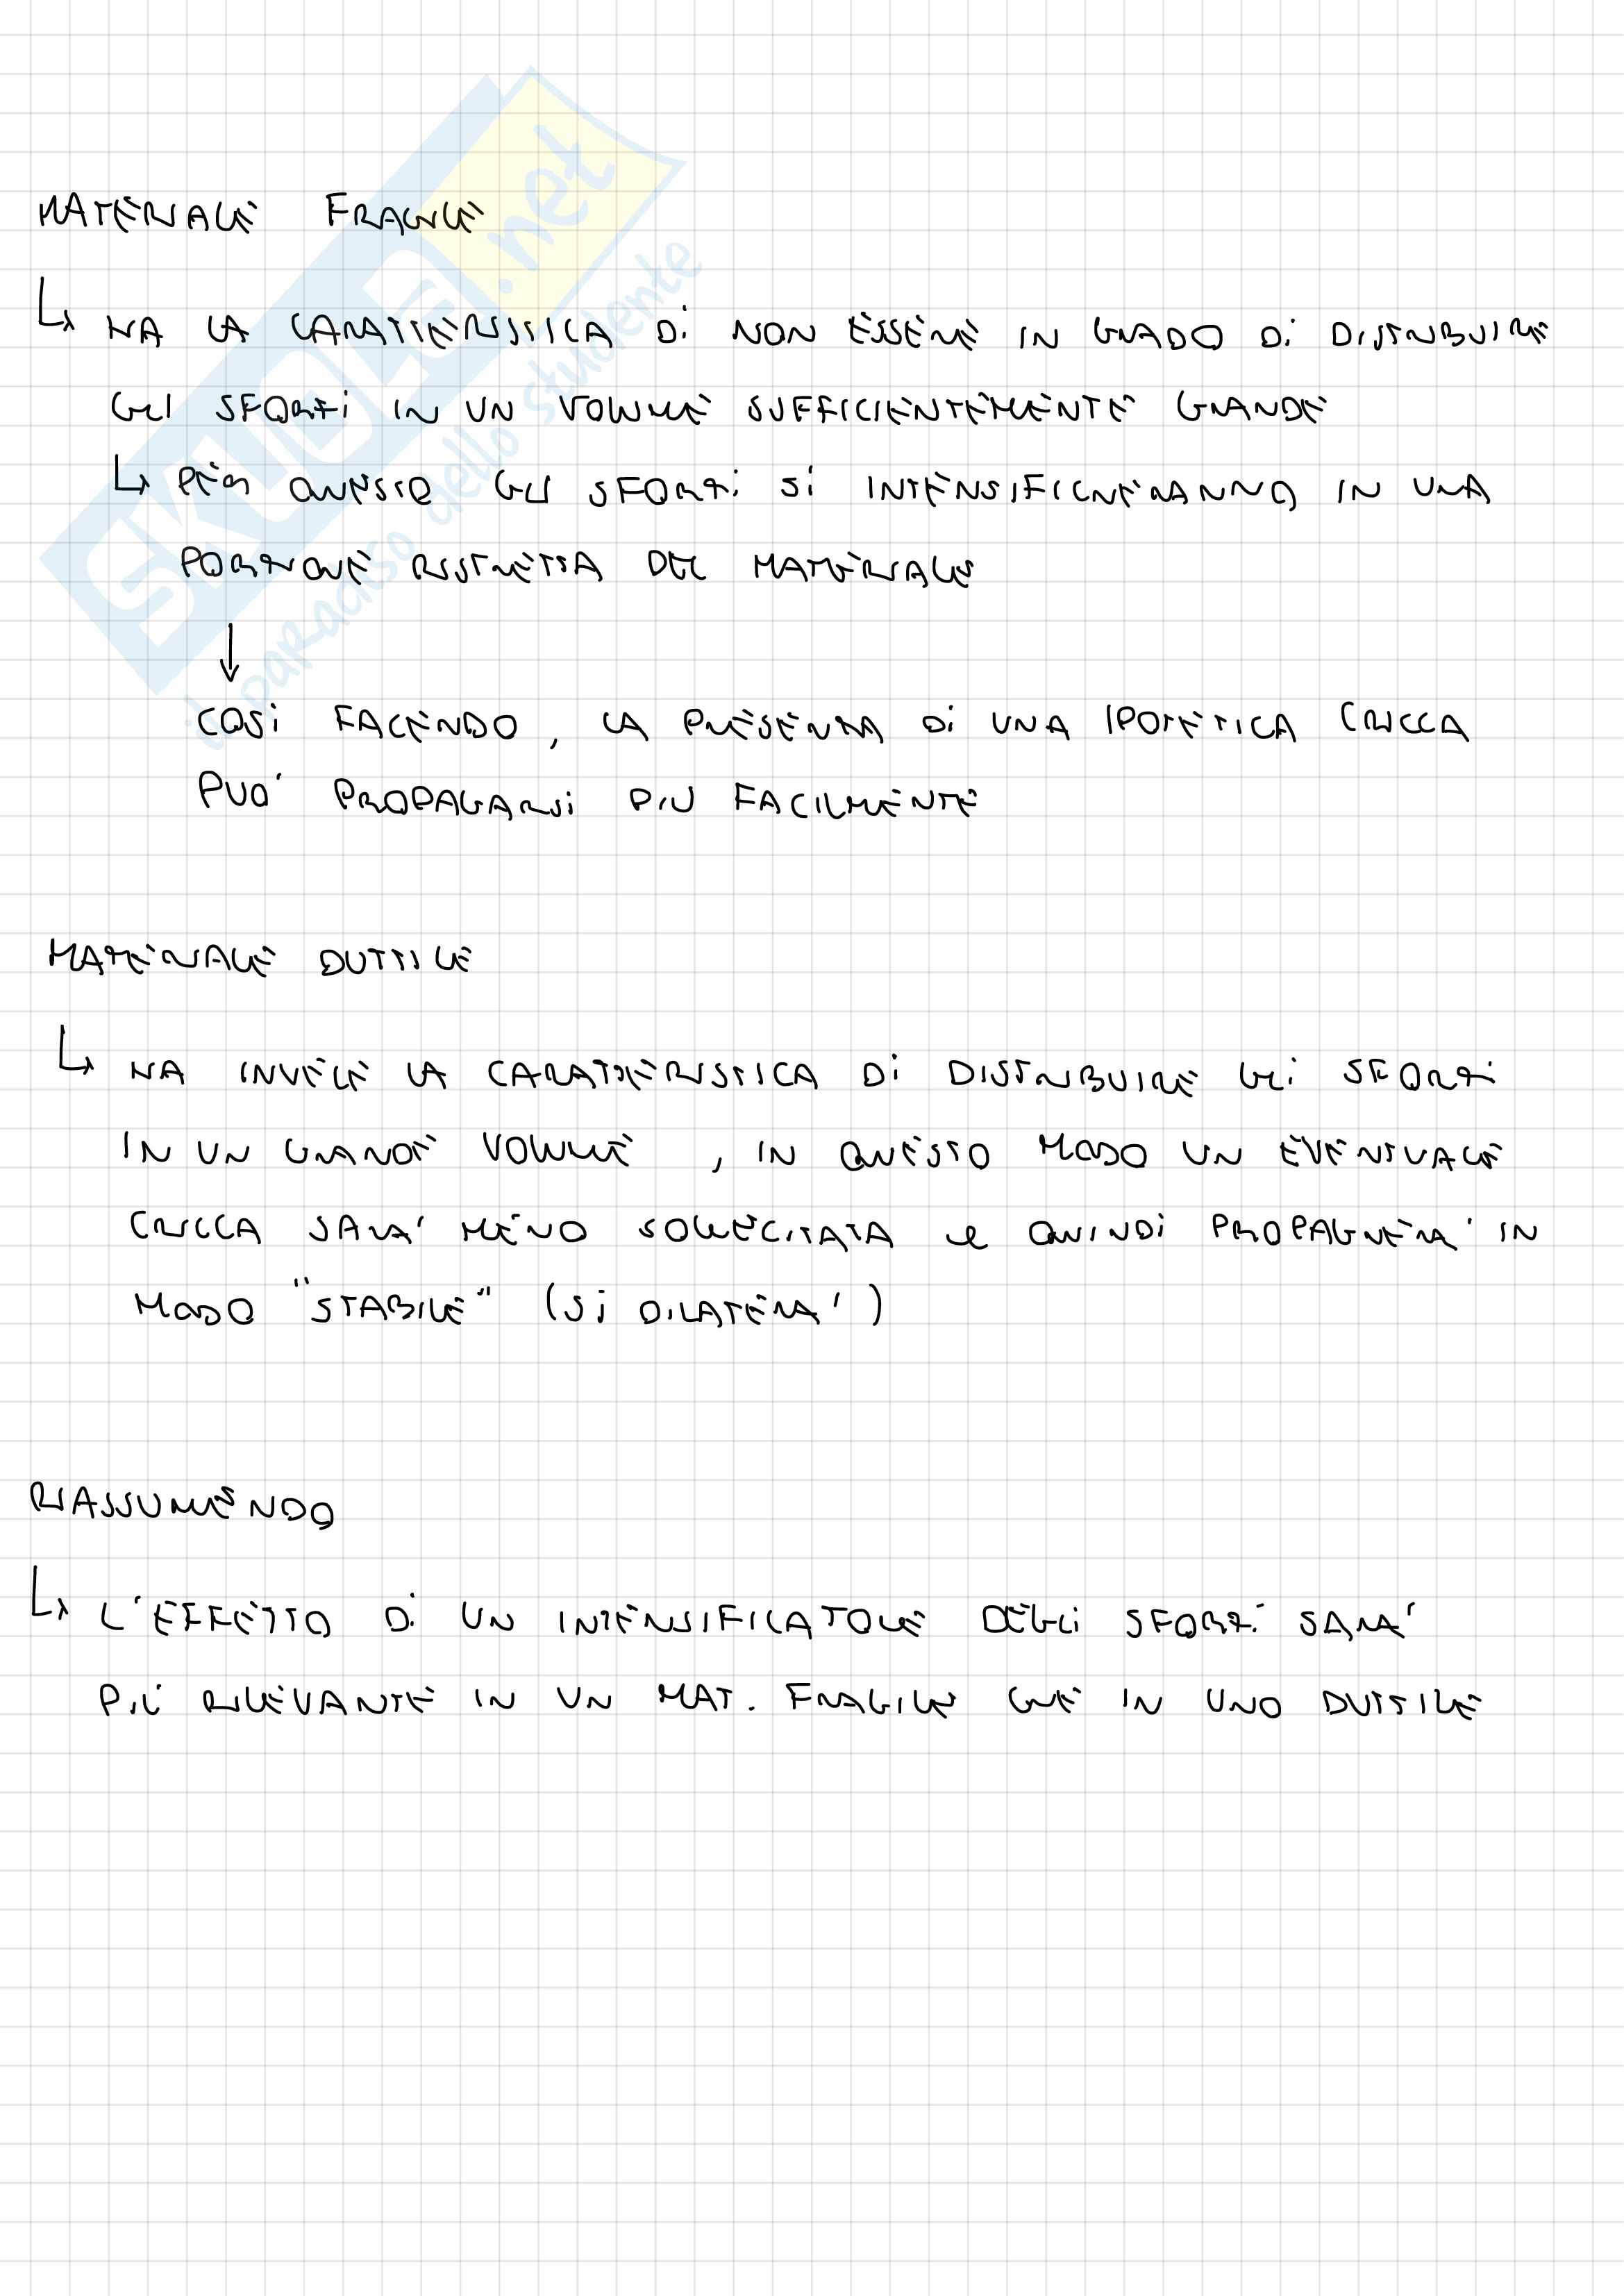 SKUOLA.net
il paradiso dello studente
MATERIALE FRAGILE
↳ HA LA CARATTERISTICA DI NON ESSERE IN GRADO DI DISTRIBUIRE
GLI SFORZI IN UN VOLUME SUFFICIENTEMENTE GRANDE
↳ PER QUESTO GLI SFORZI SI INTENSIFICHERANNO IN UNA
PORZIONE RISTRETTA DEL MATERIALE
↓
COSÌ FACENDO, LA PRESENZA DI UNA IPOTETICA CRICCA
PUO' PROPAGARSI PIU FACILMENTE
MATERIALE DUTTILE
↳ HA INVECE LA CARATTERISTICA DI DISTRIBUIRE GLI SFORZI
IN UN GRANDE VOLUME, IN QUESTO MODO UN EVENTUALE
CRICCA SARA' MENO SOLLECITATA e QUINDI PROPAGHERA' IN
MODO "STABILE" (SI DILATERA')
RIASSUMENDO
↳ L'EFFETTO DI UN INTENSIFICATORE DEGLI SFORZI SARA'
PIÙ RILEVANTE IN UN MAT. FRAGILE CHE IN UNO DUTTILE